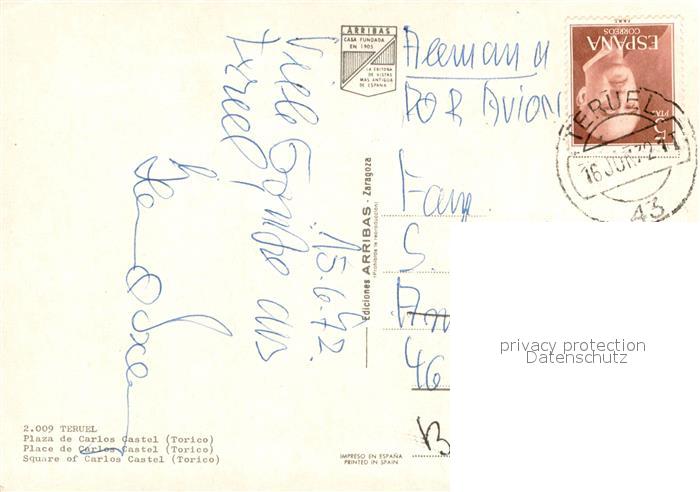 ARRIBAS
CASA FUNDADA
EN 1905
LA EDITORA
DE VISTAS
MAS ANTIGUA
DE ESPAÑA
ESPAÑA
CORREOS
5 PTAS
TERUEL
16 JUN. 72 11
43
Alemania
POR AVION
Fam
S.
46
B
15.6.72.
Viele Grüße aus
Teruel
Ediciones ARRIBAS - Zaragoza
(Prohibida la reproducción)
privacy protection
Datenschutz
2.009 TERUEL
Plaza de Carlos Castel (Torico)
Place de Carlos Castel (Torico)
Square of Carlos Castel (Torico)
IMPRESO EN ESPAÑA
PRINTED IN SPAIN